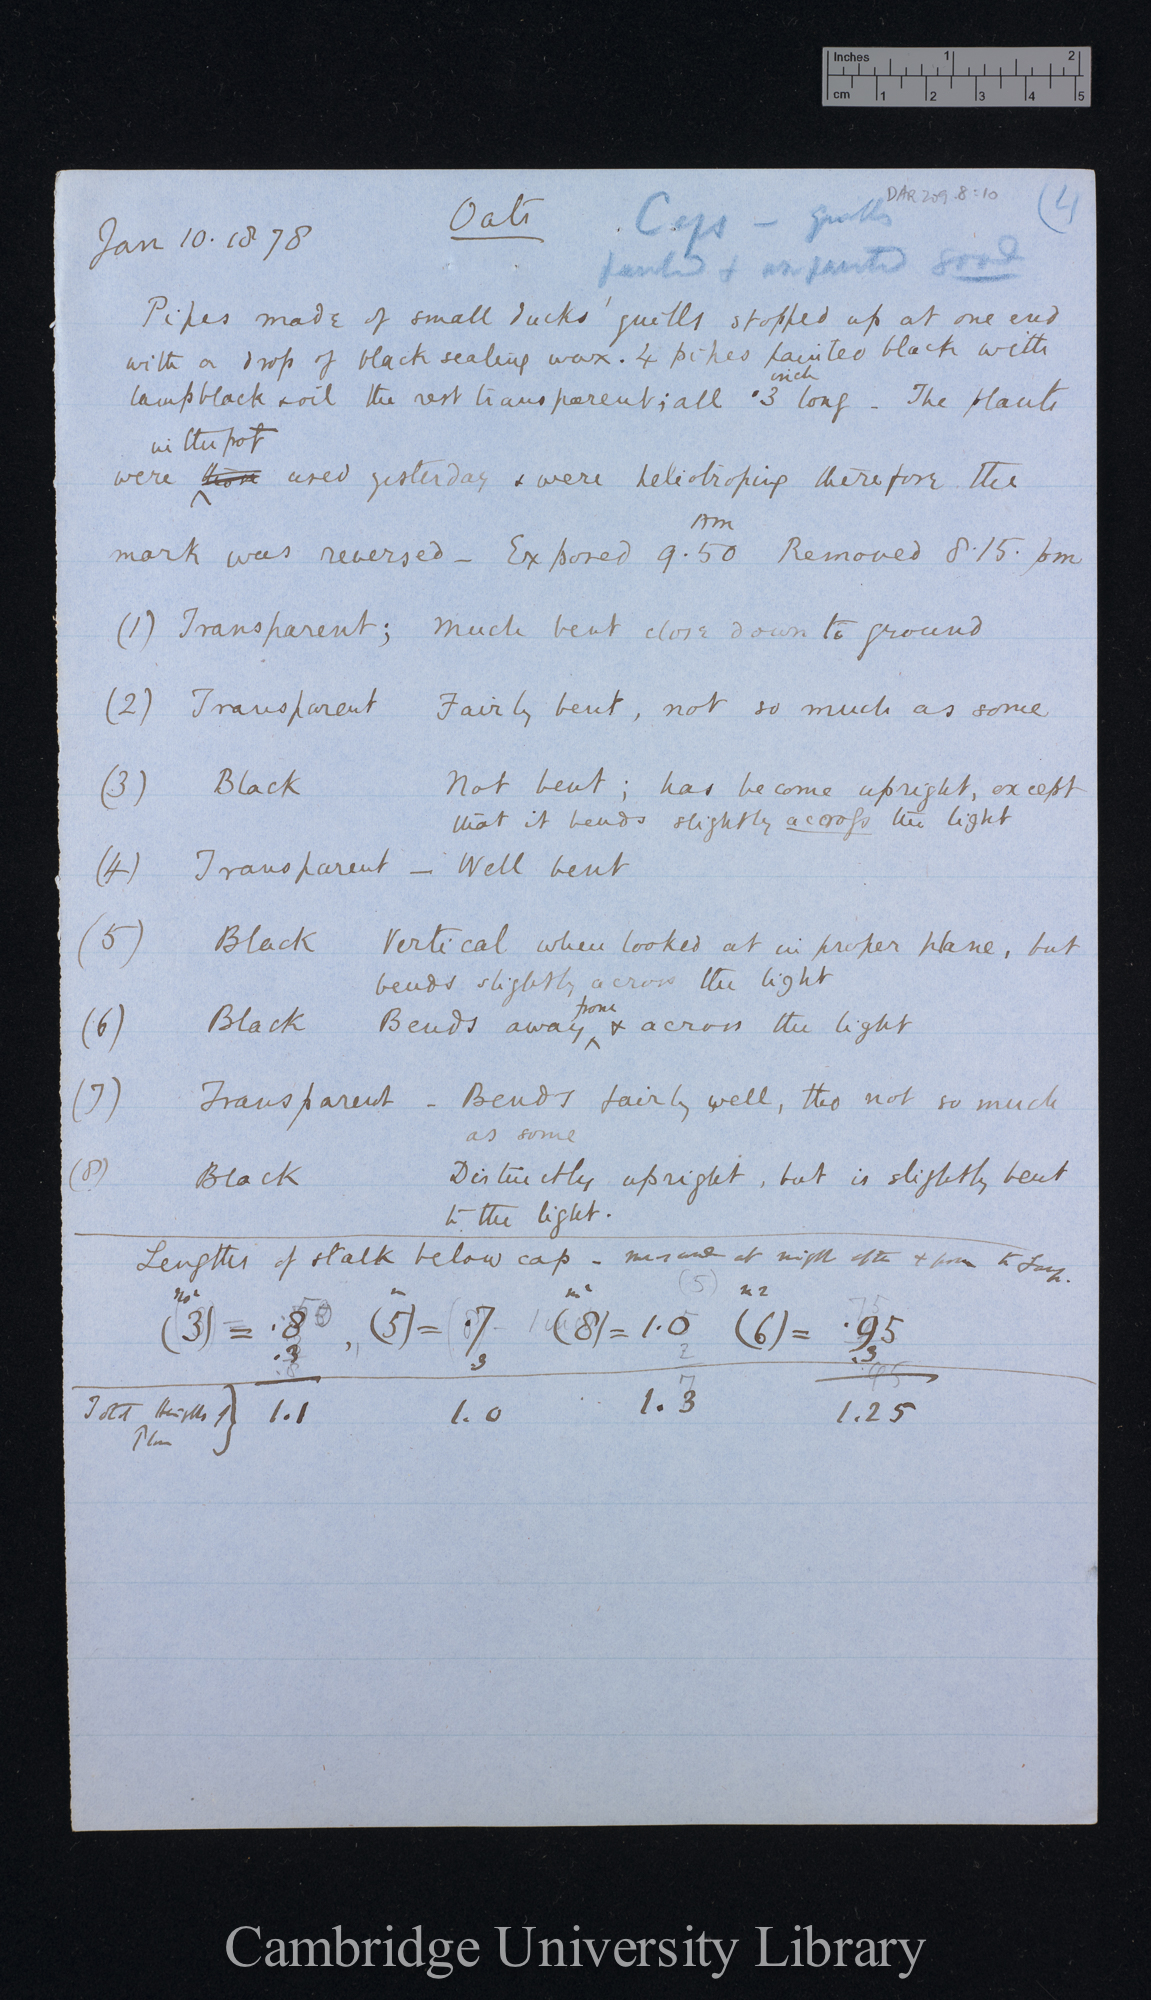 Inches 1 2
cm 1 2 3 4 5
DAR 209.8:10
(4
Oats
Caps - quills
Jan 10. 1878
painted & unpainted good
Pipes made of small ducks' quills stopped up at one end
with a drop of black sealing wax. 4 pipes painted black with
inch
lampblack & oil the rest transparent; all .3 long - The plants
in the pot
were those used yesterday & were heliotroping therefore the
AM
mark was reversed - Exposed 9.50 Removed 8.15. pm
(1) Transparent; Much bent close down to ground
(2) Transparent Fairly bent, not so much as some
(3) Black Not bent; has become upright, except
that it bends slightly across the light
(4) Transparent - Well bent
(5) Black Vertical when looked at in proper plane, but
bends slightly across the light
from
(6) Black Bends away & across the light
(7) Transparent - Bends fairly well, tho not so much
as some
(8) Black Distinctly upright, but is slightly bent
to the light.
Lengths of stalk below cap - measured at night after
(5)
(3) = .8, (5) = .7 (8) = 1.0 (6) = .95
.3 .3 .3
Total Height of } 1.1 1.0 1.3 1.25
Cambridge University Library